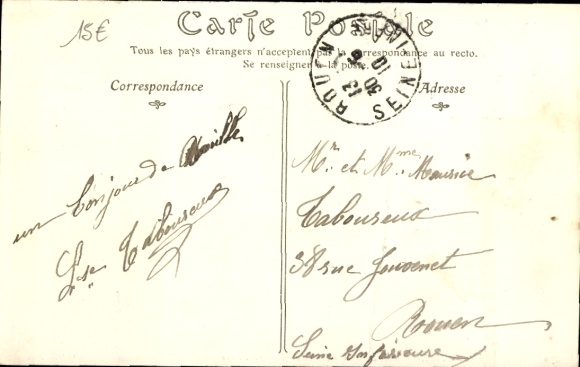 15€
Carte Postale
Tous les pays étrangers n'acceptent pas la correspondance au recto.
Se renseigner à la poste.
Correspondance
Adresse
ROUEN
13 30
10
SEINE INF
un bonjour de
Lse Taboureux
Mr. et Mme. Maurice
Taboureux
38 rue Jouvenet
Rouen
Seine Inférieure